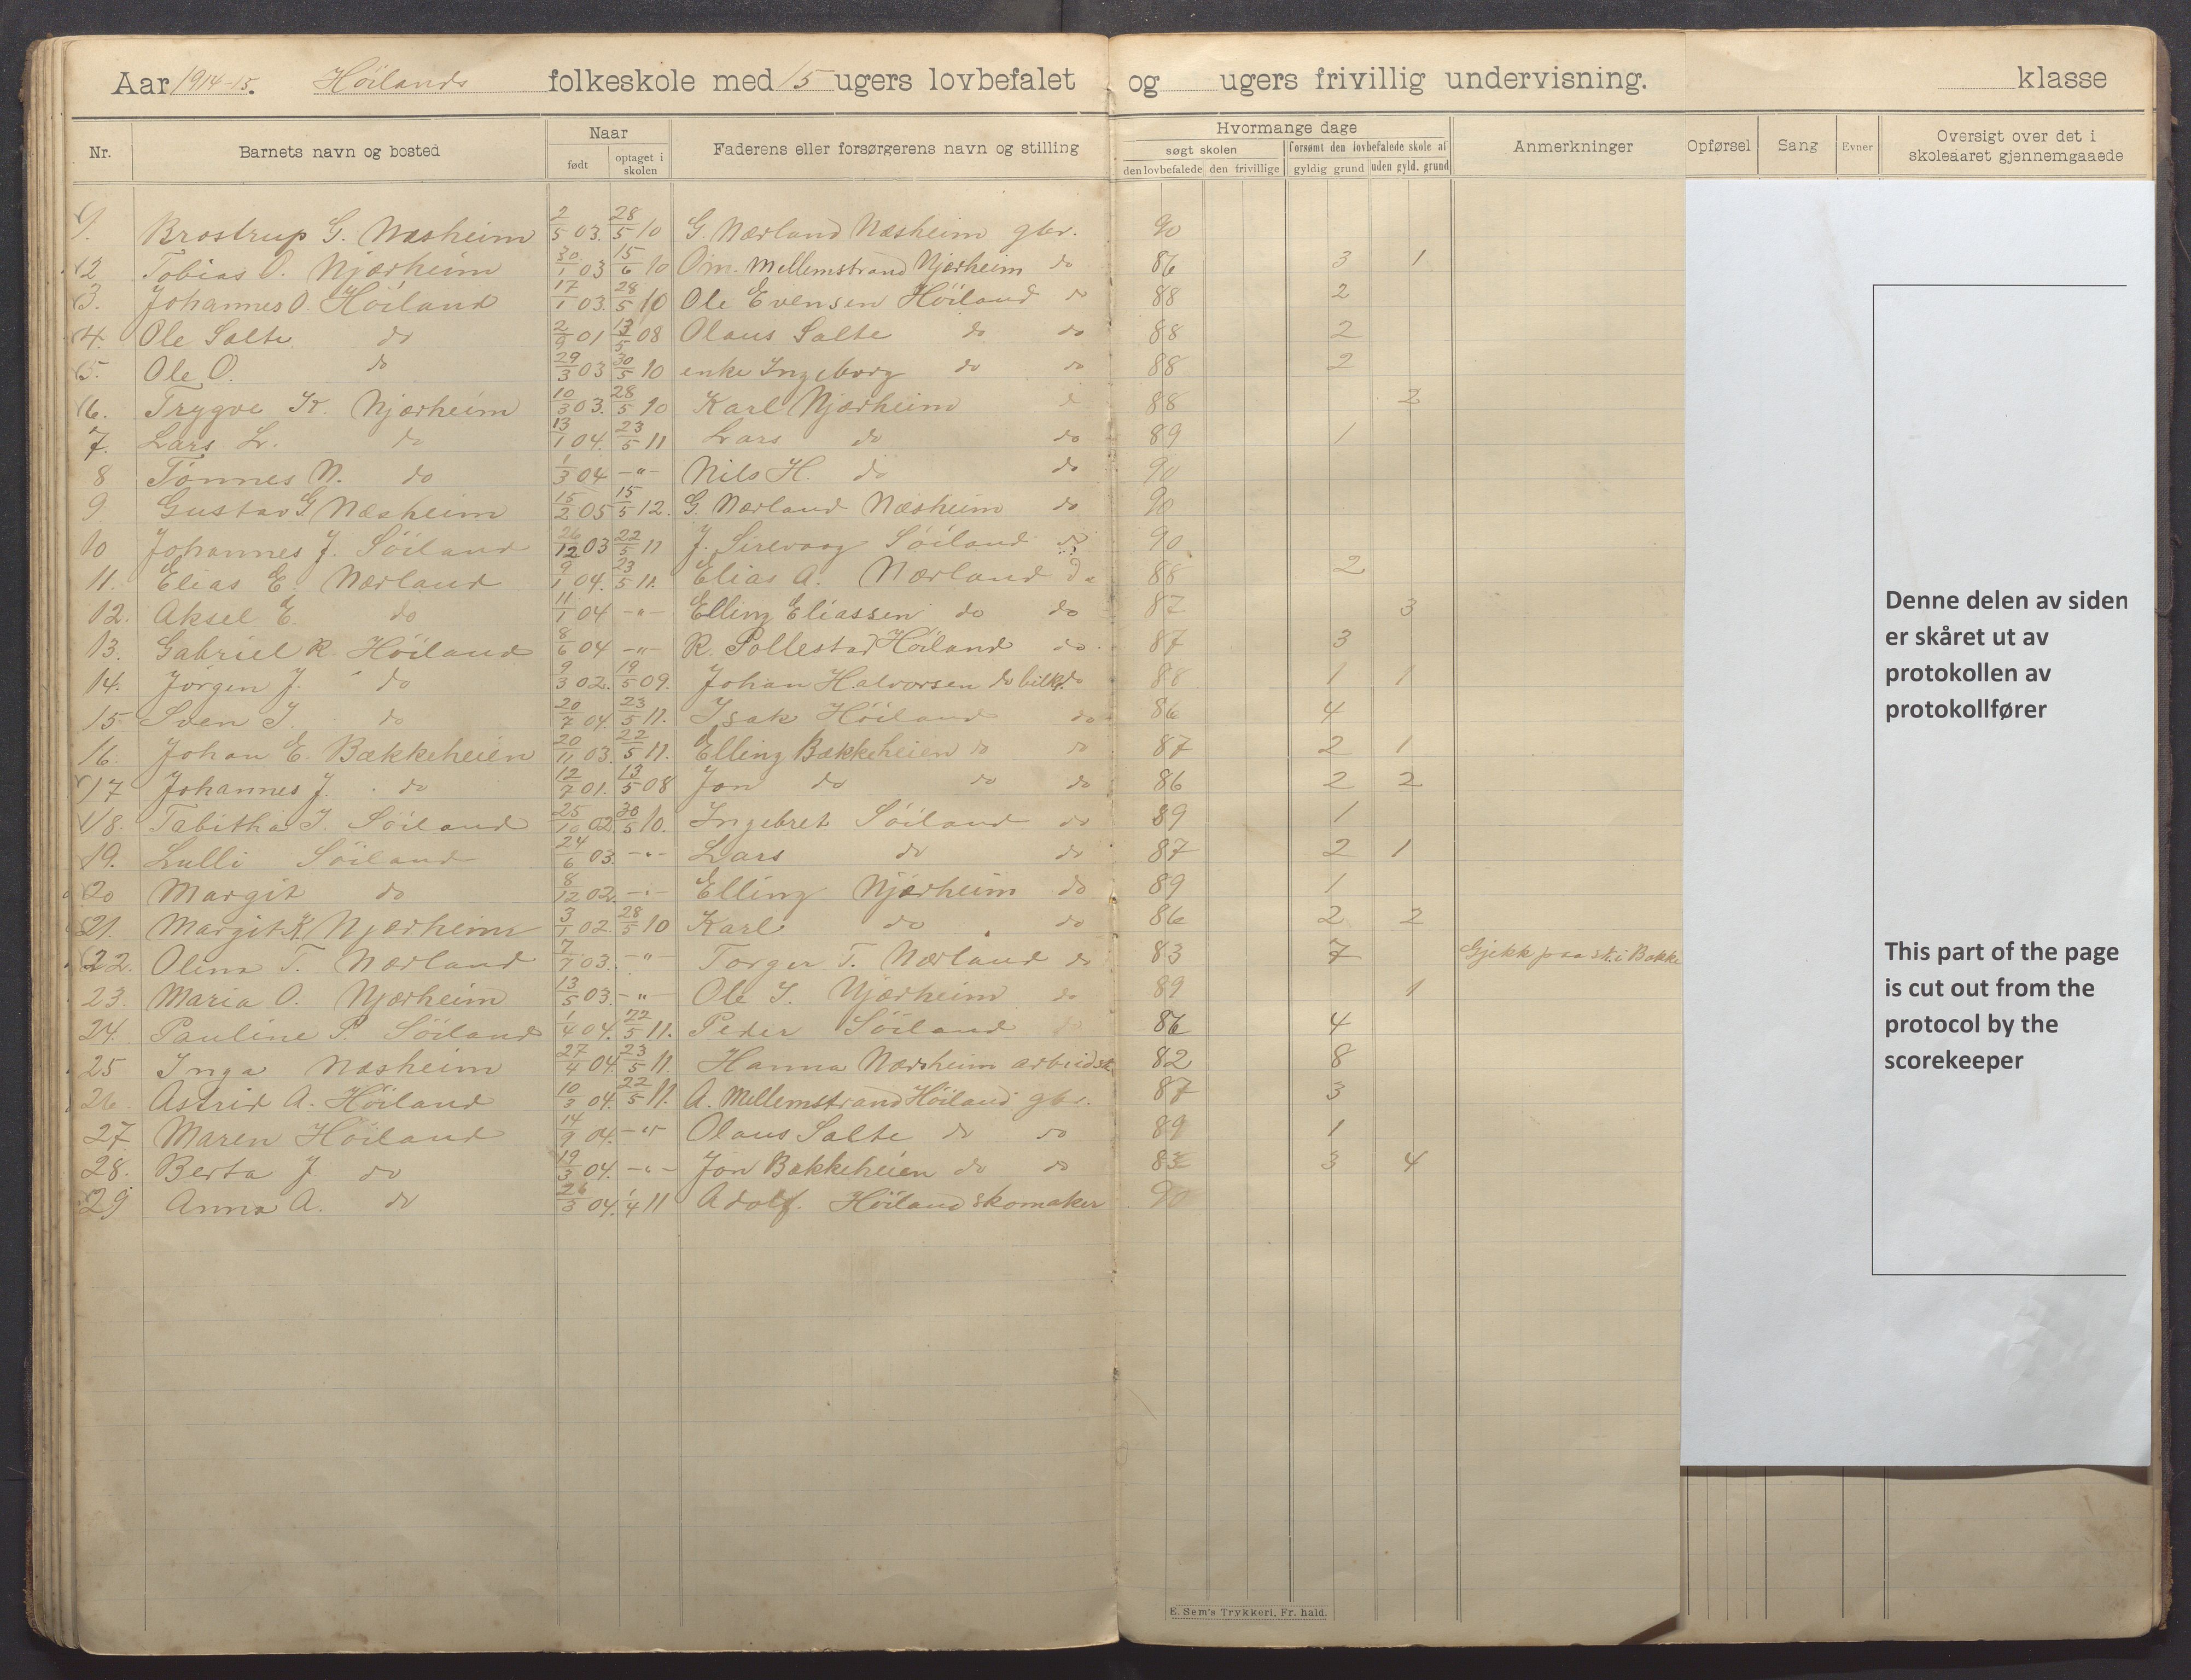 Aar 1914-15. Höilands folkeskole med 15 ugers lovbefalet og ugers frivillig undervisning. klasse
Nr. Barnets navn og bosted Naar født optaget i skolen Faderens eller forsørgerens navn og stilling Hvormange dage søgt skolen den lovbefalede den frivillige forsømt den lovbefalede skole af gyldig grund uden gyld. grund Anmerkninger Opførsel Sang Evner Oversigt over det i skoleaaret gjennemgaaede
1. Brostrup G. Næsheim 2/5 03. 28/5 10 G. Nærland Næsheim gbr. 90
2 Tobias O. Njærheim 30/1 03 15/6 10 Om. Mellemstrand Njærheim do 86 3 1
3. Johannes O. Höiland 17/1 03. 28/5 10 Ole Evensen Höiland do 88 2
4. Ole Salte do 2/9 01 13/5 08 Olaus Salte do do 88 2
5. Ole O. do 29/3 03 30/5 10 enke Ingeborg do do 88 2
6. Trygve K. Njærheim 10/3 03. 28/5 10 Karl Njærheim d 88 2
7. Lars L. do 13/1 04. 23/5 11 Lars do do 89 1
8 Tönnes N. do 1/3 04 -"- Nils H. do do 90
9 Gustav G Næsheim 15/2 05 15/5 12. G. Nærland Næsheim do 90
10 Johannes J. Söiland 26/12 03 22/5 11 J. Sirevaag Söiland do 90
11. Elias E. Nærland 9/1 04. 23/5 11. Elias A. Nærland do 88 2
12. Aksel E. do 11/1 04 -"- Elling Eliassen do do 87 3
13. Gabriel R. Höiland 8/6 04 -"- R. Pollestad Höiland do 87 3
14. Jörgen J. do 9/3 02. 19/5 09. Johan Halvorsen do do 88 1 1
15 Sven I. do 20/7 04. 23/5 11. Isak Höiland do 86 4
16. Johan E. Bækkeheien 20/11 03. 22/5 11. Elling Bækkeheien do do 87 2 1
17 Johannes J. do 12/7 01. 13/5 08 Jon do do do 86 2 2
18. Tabitha I. Söiland 25/10 02 30/5 10. Ingebret Söiland do 89 1
19. Lulli Söiland 24/6 03. -"- Lars do do 87 2 1
20 Margit do 8/12 02. -"- Elling Njærheim do 89 1
21. Margit K. Njærheim 3/1 02. 28/5 10 Karl do do 86 2 2
22. Olena T. Nærland 7/7 03. -"- Torger T. Nærland do 83 7 Gjekk paa sk. i Bakke
23. Maria O. Njærheim 13/5 03. -"- Ole I. Njærheim do 89 1
24. Pauline P. Söiland 1/4 04. 22/5 11. Peder Söiland do 86 4
25 Inga Næsheim 27/4 04. 23/5 11 Hanna Nærheim arbeidsk. 82 8
26. Astrid A. Höiland 10/3 04. 22/5 11. A. Mellemstrand Höiland gbr. 87 3
27 Maren Höiland 14/9 04. -"- Olaus Salte do do 89 1
28. Berta J. do 19/3 04. -"- Jon Bækkeheien do do 83 3 4
29 Anna A. do 26/3 04. 1/4 11 Adolf. Höiland skomaker 90
Denne delen av siden
er skåret ut av
protokollen av
protokollfører
This part of the page
is cut out from the
protocol by the
scorekeeper
E. Sem's Trykkeri, Fr. hald.